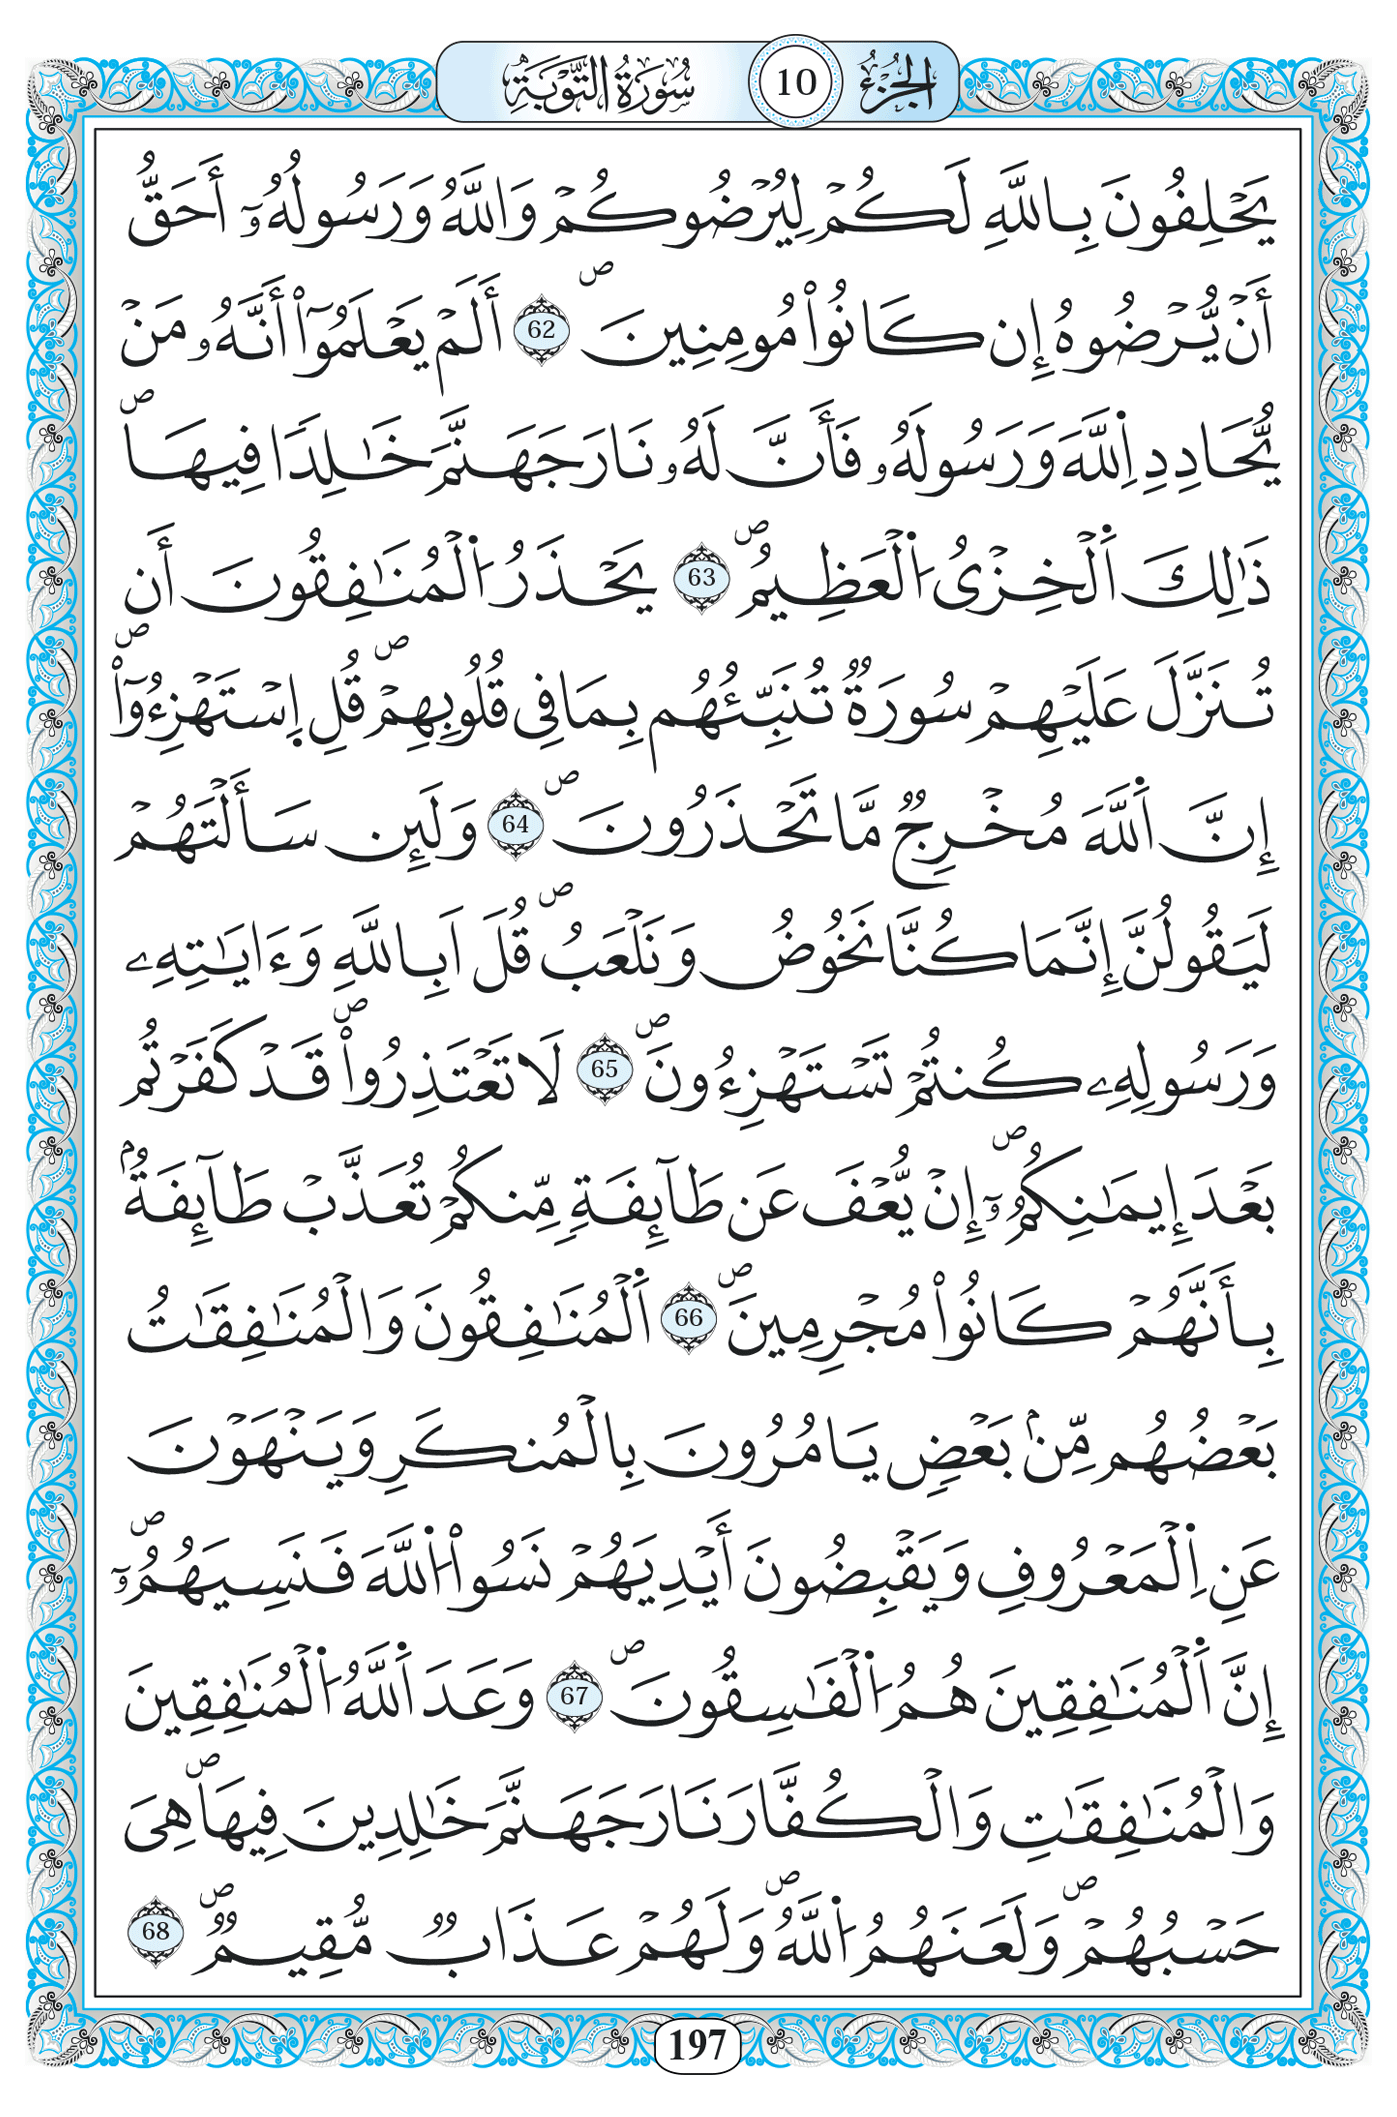 الجزء 10 سورة التوبة
يَحْلِفُونَ بِاللَّهِ لَكُمْ لِيُرْضُوكُمْ وَاللَّهُ وَرَسُولُهُۥٓ أَحَقُّ
أَنْ يُّرْضُوهُ إِن كَانُواْ مُومِنِينَۖ 62 أَلَمْ يَعْلَمُوٓاْ أَنَّهُۥ مَنْ
يُّحَادِدِ اِللَّهَ وَرَسُولَهُۥ فَأَنَّ لَهُۥ نَارَ جَهَنَّمَ خَٰلِدًا فِيهَاۖ
ذَٰلِكَ اَلْخِزْىُ اُلْعَظِيمُۖ 63 يَحْذَرُ اُلْمُنَٰفِقُونَ أَن
تُنَزَّلَ عَلَيْهِمْ سُورَةٌ تُنَبِّئُهُم بِمَا فِى قُلُوبِهِمْۖ قُلِ اِسْتَهْزِءُوٓاْۖ
إِنَّ اَللَّهَ مُخْرِجٌ مَّا تَحْذَرُونَۖ 64 وَلَئِن سَأَلْتَهُمْ
لَيَقُولُنَّ إِنَّمَا كُنَّا نَخُوضُ وَنَلْعَبُۖ قُلَ اَبِاللَّهِ وَءَايَٰتِهِۦ
وَرَسُولِهِۦ كُنتُمْ تَسْتَهْزِءُونَۖ 65 لَا تَعْتَذِرُواْۖ قَدْ كَفَرْتُم
بَعْدَ إِيمَٰنِكُمُۥٓۖ إِنْ يُّعْفَ عَن طَآئِفَةٍ مِّنكُمْ تُعَذَّبْ طَآئِفَةُۢ
بِأَنَّهُمْ كَانُواْ مُجْرِمِينَۖ 66 اَلْمُنَٰفِقُونَ وَالْمُنَٰفِقَٰتُ
بَعْضُهُم مِّنۢ بَعْضٍ يَامُرُونَ بِالْمُنكَرِ وَيَنْهَوْنَ
عَنِ اِلْمَعْرُوفِ وَيَقْبِضُونَ أَيْدِيَهُمْ نَسُواْ اُللَّهَ فَنَسِيَهُمُۥٓۖ
إِنَّ اَلْمُنَٰفِقِينَ هُمُ اُلْفَٰسِقُونَۖ 67 وَعَدَ اَللَّهُ اُلْمُنَٰفِقِينَ
وَالْمُنَٰفِقَٰتِ وَالْكُفَّارَ نَارَ جَهَنَّمَ خَٰلِدِينَ فِيهَاۖ هِىَ
حَسْبُهُمْۖ وَلَعَنَهُمُ اُللَّهُۖ وَلَهُمْ عَذَابٌ مُّقِيمٌۖ 68
197